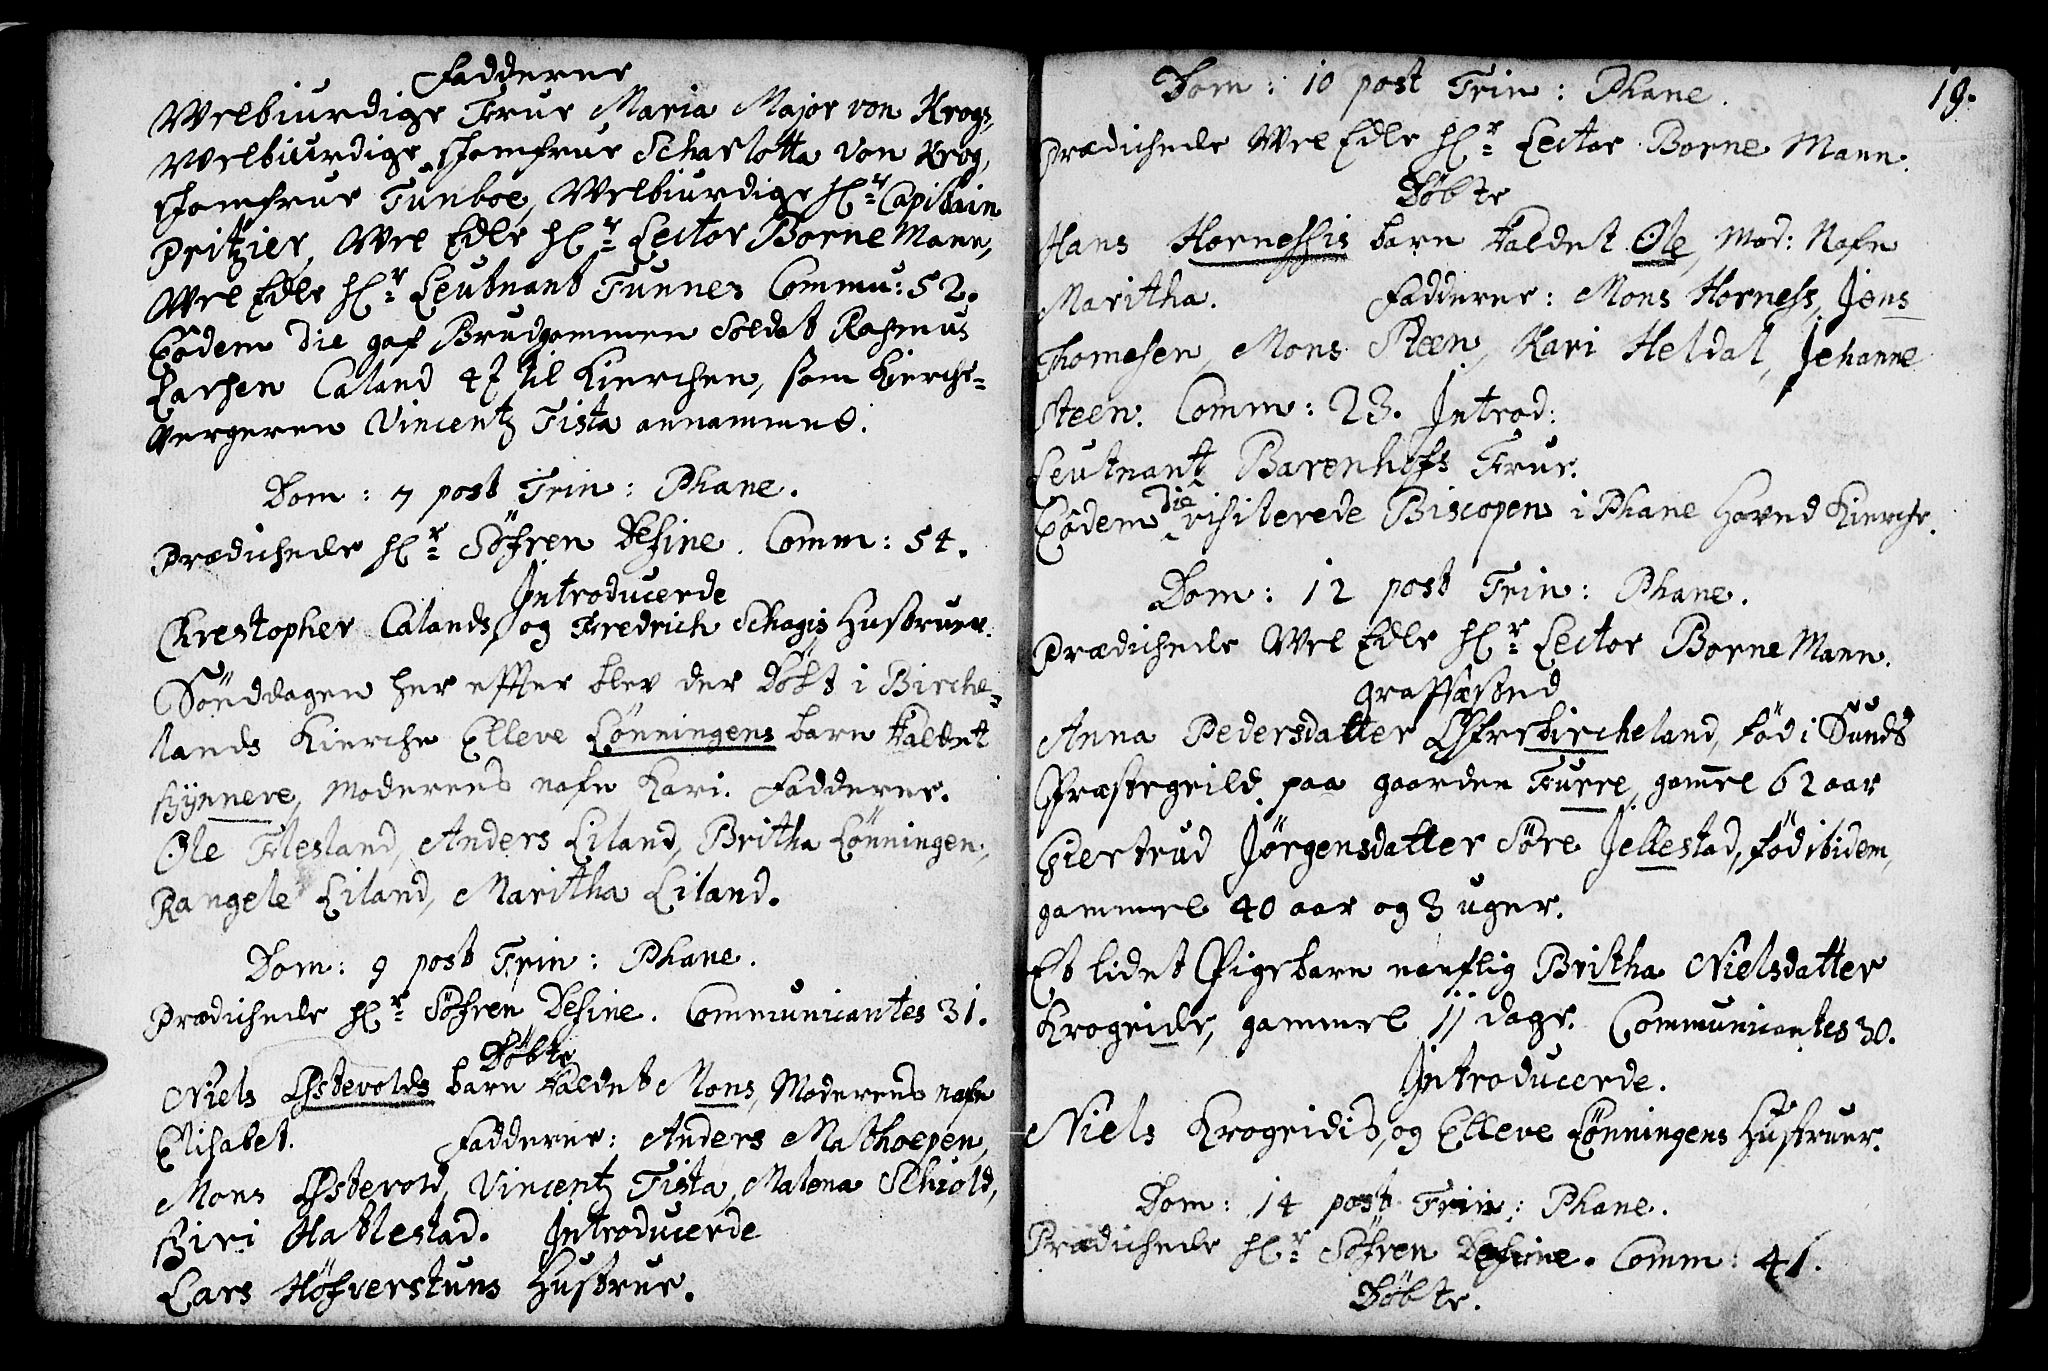 Fadderne
Welbiurdige Frue Maria Major von Krogs,
Welbiurdige Jomfrue Scharlotta von Krog,
Jomfrue Tunboe, Welbiurdige Hr: Capitain
Pritzier, Wel Edle Hr: Lector Borne Mann,
Wel Edle Hr: Leutnant Tunnes Commu: 52.
Eodem die gaf Brudgommen Soldat Rasmus
Larsen Caland 4 til Kierchen, som Kierche-
vergeren Vincentz Tista annammed.
Dom: 7 post Trin: Phane.
Prædichede Hr: Söfren Desine. Comm: 54.
Introducerde
Chrestopher Calands, og Fredrich Schagis Hustruer.
Sönddagen her effter blev der Döbt i Birche-
lands Kierche Elleve Lönningens barn Kaldet
Synneve, Moderens nafn Kari. Fadderne.
Ole Flesland, Anders Liland, Britha Lönningen,
Rangele Liland, Maritha Liland.
Dom: 9 post Trin: Phane.
Prædichede Hr: Söfren Desine. Communicantes 31.
Döbte
Niels Østevolds barn Kaldet Mons, Moderens nafn
Elisabet. Fadderne: Anders Mathoepen,
Mons Østevold, Vincentz Tista, Malena Schiold,
Siri Hatlestad. Introducerde
Lars Höfverstuns Hustrue.
19.
Dom: 10 post Trin: Phane.
Prædichede Wel Edle Hr: Lector Borne Mann.
Döbte
Hans Hornessis barn Kaldet Ole, Mod: Nafn
Maritha. Fadderne: Mons Horness, Jens
Thomesen, Mons Steen, Kari Heldal, Jehanne
Steen. Comm: 23. Introd:
Leutnant Barenhofs Frue.
Eodem die visiterede Biscopen i Phane Hoved Kierche.
Dom: 12 post Trin: Phane.
Prædichede Wel Edle Hr: Lector Borne Mann.
Graffæsted
Anna Pedersdatter Øfrebircheland, föd i Sunds
Præstegeild paa gaarden Fuere, gamel 62 aar
Giertrud Jørgensdatter Söre Jellestad, föd ibidem,
gammel 40 aar og 3 uger.
Et lidet Pigebarn nauflig Britha Nielsdatter
Krogeide, gammel 11 dage. Communicantes 30.
Introducerde.
Niels Krogeidis, og Elleve Lönningens Hustruer.
Dom: 14 post Trin: Phane.
Prædichede Hr: Söfren Desine. Comm: 41.
Döbte.